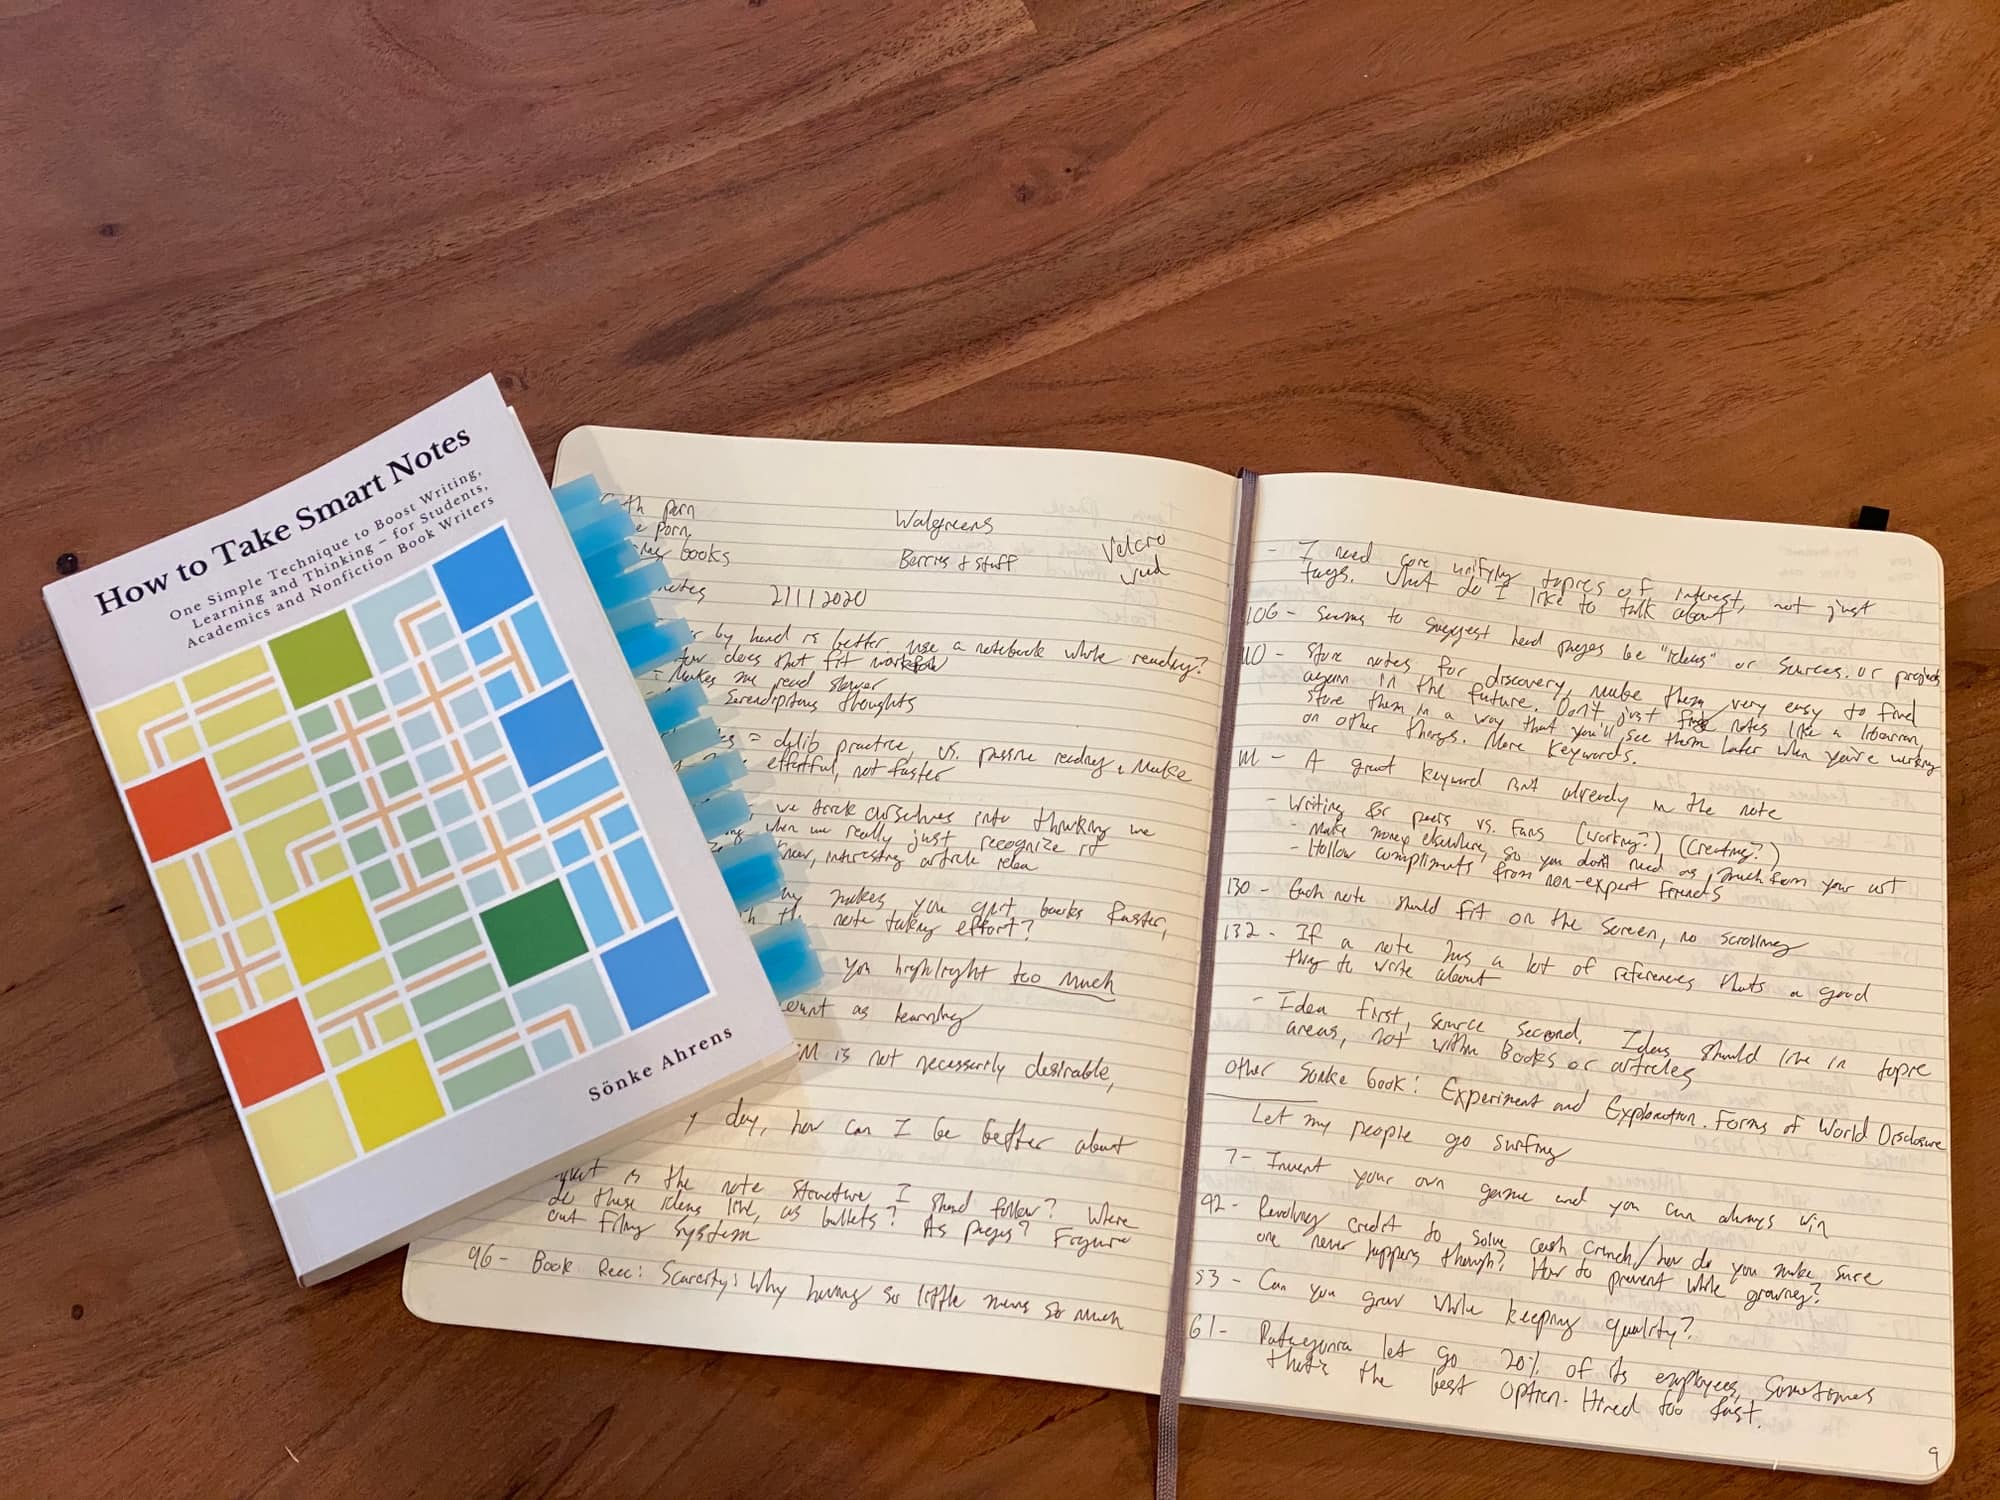 How to Take Smart Notes
One Simple Technique to Boost Writing,
Learning and Thinking – for Students,
Academics and Nonfiction Book Writers
Sönke Ahrens
th porn
e porn
books
Walgreens
Berries + stuff
Velcro
notes 2/1/2020
by hand is better. use a notebook while reading?
how does that fit
- Makes me read slower
Serendipitous thoughts
= delib practice, vs. passive reading. Make
effortful, not faster
we trick ourselves into thinking we
when we really just recognize it
interesting article idea
makes you quit books faster,
the note taking effort?
you highlight too much
count as learning
is not necessarily desirable,
day, how can I be better about
what is the note structure I should follow? Where
do these ideas live, as bullets? As pages? Figure
out filing system
96 - Book Rec: Scarcity: Why having so little means so much
- I need core unifying topics of interest, not just
tags. What do I like to talk about
106 - Seems to suggest head pages be "ideas" or sources. or projects
110 - Store notes for discovery, make them very easy to find
again in the future. Don't just notes like a librarian,
store them in a way that you'll see them later when you're working
on other things. More keywords.
111 - A great keyword isn't already in the note
- Writing for peers vs. Fans (working?) (Creating?)
- Make money elsewhere, so you don't need as much from your art
- Hollow compliments from non-expert friends
130 - Each note should fit on the screen, no scrolling
132 - If a note has a lot of references thats a good
thing to write about
- Idea first, source second. Ideas should live in topic
areas, not within Books or articles
other Sonke book: Experiment and Exploration. Forms of World Disclosure
Let my people go surfing
7 - Invent your own game and you can always win
92 - Revolving credit to solve cash crunch/how do you make sure
one never happens though? How to prevent while growing?
53 - Can you grow while keeping quality?
61 - Patagonia let go 20% of its employees, Sometimes
that's the best option. Hired too fast.
9